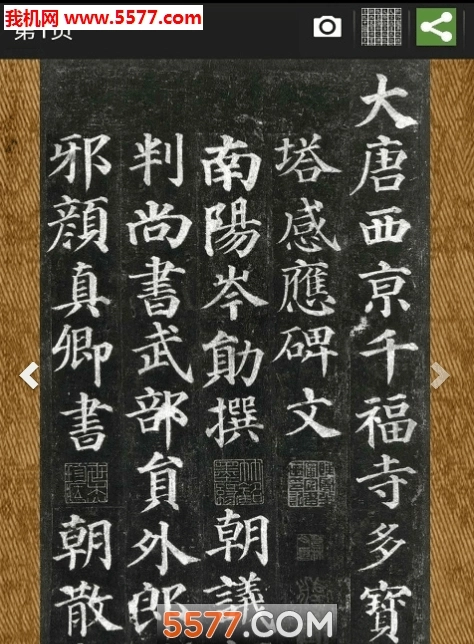 我机网www.5577.com
第1页
大唐西京千福寺多寶
塔感應碑文
南陽岑勛撰 朝議
判尚書武部員外郎
邪顏真卿書 朝散
5577.COM